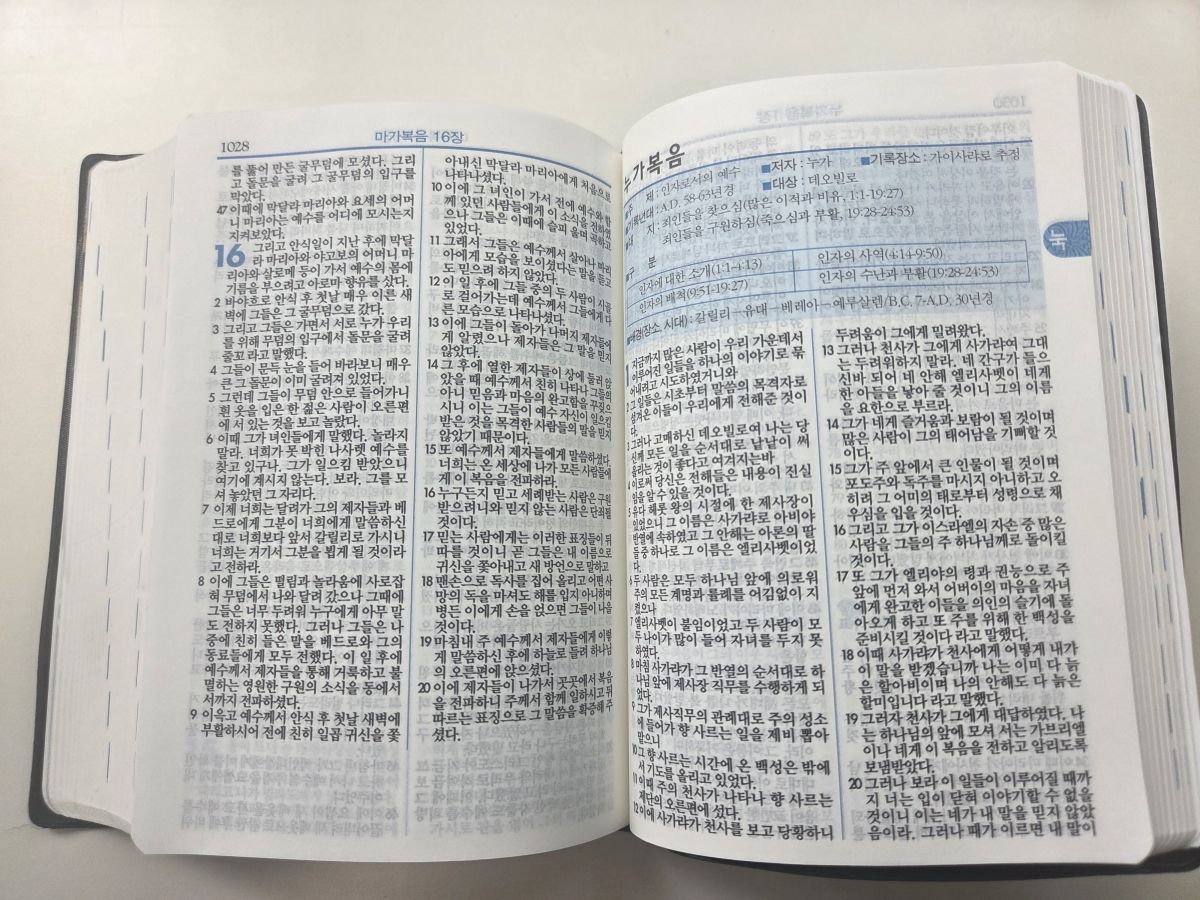 1028
마가복음 16장
를 뚫어 만든 굴무덤에 모셨다. 그리
고 돌문을 굴려 그 굴무덤의 입구를
막았다.
47 이때에 막달라 마리아와 요세의 어머
니 마리아는 예수를 어디에 모시는지
지켜보았다.
16 그리고 안식일이 지난 후에 막달
라 마리아와 야고보의 어머니 마
리아와 살로메 등이 가서 예수의 몸에
기름을 부으려고 아로마 향유를 샀다.
2 바야흐로 안식 후 첫날 매우 이른 새
벽에 그들은 그 굴무덤으로 갔다.
3 그리고 그들은 가면서 서로 누가 우리
를 위해 무덤의 입구에서 돌문을 굴려
줄꼬 라고 말했다.
4 그들이 문득 눈을 들어 바라보니 매우
큰 그 돌문이 이미 굴려져 있었다.
5 그런데 그들이 무덤 안으로 들어가니
흰 옷을 입은 한 젊은 사람이 오른편
에 서 있는 것을 보고 놀랐다.
6 이때 그가 녀인들에게 말했다. 놀라지
말라. 너희가 못 박힌 나사렛 예수를
찾고 있구나. 그가 일으킴 받았으니
여기에 계시지 않는다. 보라. 그를 모
셔 놓았던 그 자리다.
7 이제 너희는 달려가 그의 제자들과 베
드로에게 그분이 너희에게 말씀하신
대로 너희보다 앞서 갈릴리로 가시니
너희는 거기서 그분을 뵙게 될 것이라
고 전하라.
8 이에 그들은 떨림과 놀라움에 사로잡
혀 무덤에서 나와 달려 갔으나 그때에
그들은 너무 두려워 누구에게 아무 말
도 전하지 못했다. 그러나 그들은 나
중에 친히 들은 말을 베드로와 그의
동료들에게 모두 전했다. 이 일 후에
예수께서 제자들을 통해 거룩하고 불
멸하는 영원한 구원의 소식을 동에서
서까지 전파하셨다.
9 이윽고 예수께서 안식 후 첫날 새벽에
부활하시어 전에 친히 일곱 귀신을 쫓
아내신 막달라 마리아에게 처음으로
나타나셨다.
10 이에 그 녀인이 가서 전에 예수와 함
께 있던 사람들에게 이 소식을 전하였
으나 그들은 이때에 슬피 울며 곡하고
있었다.
11 그래서 그들은 예수께서 살아나 마리
아에게 모습을 보이셨다는 말을 듣고
도 믿으려 하지 않았다.
12 이 일 후에 그들 중의 두 사람이 시골
로 걸어가는데 예수께서 그들에게 다
른 모습으로 나타나셨다.
13 이에 그들이 돌아가 나머지 제자들에
게 알렸으나 제자들은 그 말을 믿지
않았다.
14 그 후에 열한 제자들이 상에 둘러 앉
았을 때 예수께서 친히 나타나 그들의
아니 믿음과 마음의 완고함을 꾸짖으
시니 이는 그들이 예수 자신이 일으킴
받은 것을 목격한 사람들의 말을 믿지
않았기 때문이다.
15 또 예수께서 제자들에게 말씀하셨다.
너희는 온 세상에 나가 모든 사람들에
게 이 복음을 전파하라.
16 누구든지 믿고 세례받는 사람은 구원
받으려니와 믿지 않는 사람은 단죄될
것이다.
17 믿는 사람에게는 이러한 표징들이 뒤
따를 것이니 곧 그들은 내 이름으로
귀신을 쫓아내고 새 방언으로 말하고
18 맨손으로 독사를 집어 올리고 어떤 사
망의 독을 마셔도 해를 입지 아니하며
병든 이에게 손을 얹으면 그들이 나을
것이다.
19 마침내 주 예수께서 제자들에게 이렇
게 말씀하신 후에 하늘로 들려 하나님
의 오른편에 앉으셨다.
20 이에 제자들이 나가서 곳곳에서 복음
을 전파하니 주께서 함께 일하시고 뒤
따르는 표징으로 그 말씀을 확증해 주
셨다.
누가복음
제 : 인자로서의 예수 ■저자 : 누가 ■기록장소 : 가이사랴로 추정
년대 : A.D. 58-63년경 ■대상 : 데오빌로
지 : 죄인들을 찾으심(많은 이적과 비유, 1:1-19:27)
죄인들을 구원하심(죽으심과 부활, 19:28-24:53)
구 분
인자에 대한 소개(1:1-4:13) 인자의 사역(4:14-9:50)
인자의 배척(9:51-19:27) 인자의 수난과 부활(19:28-24:53)
배경(장소, 시대) : 갈릴리-유대-베레아-예루살렘/B.C. 7-A.D. 30년경
눅
1 지금까지 많은 사람이 우리 가운데서
이루어진 일들을 하나의 이야기로 묶
아내려고 시도하였거니와
2 그 일들은 시초부터 말씀의 목격자로
섬겨온 이들이 우리에게 전해준 것이
다.
3 그러나 고매하신 데오빌로여 나는 당
신께 모든 일을 순서대로 낱낱이 써
올리는 것이 좋다고 여겨지는바
4 이로써 당신은 전해들은 내용이 진실
임을 알 수 있을 것이다.
5 유다 헤롯 왕의 시절에 한 제사장이
있었으니 그 이름은 사가랴로 아비야
반열에 속하였고 그 안해는 아론의 딸
들 중 하나로 그 이름은 엘리사벳이었
다.
6 두 사람은 모두 하나님 앞에 의로워
주의 모든 계명과 률례를 어김없이 지
켰으나
7 엘리사벳이 불임이었고 두 사람이 모
두 나이가 많이 들어 자녀를 두지 못
하였다.
8 마침 사가랴가 그 반열의 순서대로 하
나님 앞에 제사장 직무를 수행하게 되
었다.
9 그가 제사직무의 관례대로 주의 성소
에 들어가 향 사르는 일을 제비 뽑아
맡으니
10 그 향 사르는 시간에 온 백성은 밖에
서 기도를 올리고 있었다.
11 이때 주의 천사가 나타나 향 사르는
제단의 오른편에 섰다.
12 이에 사가랴가 천사를 보고 당황하니
두려움이 그에게 밀려왔다.
13 그러나 천사가 그에게 사가랴여 그대
는 두려워하지 말라. 네 간구가 들으
신바 되어 네 안해 엘리사벳이 네게
한 아들을 낳아 줄 것이니 그의 이름
을 요한으로 부르라.
14 그가 네게 즐거움과 보람이 될 것이며
많은 사람이 그의 태어남을 기뻐할 것
이다.
15 그가 주 앞에서 큰 인물이 될 것이며
포도주와 독주를 마시지 아니하고 오
히려 그 어미의 태로부터 성령으로 채
우심을 입을 것이다.
16 그리고 그가 이스라엘의 자손 중 많은
사람을 그들의 주 하나님께로 돌이킬
것이다.
17 또 그가 엘리야의 령과 권능으로 주
앞에 먼저 와서 어버이의 마음을 자녀
에게 완고한 이들을 의인의 슬기에 돌
아오게 하고 또 주를 위해 한 백성을
준비시킬 것이다 라고 말했다.
18 이때 사가랴가 천사에게 어떻게 내가
이 말을 받겠습니까 나는 이미 다 늙
은 할아비이며 나의 안해도 다 늙은
할미입니다 라고 말했다.
19 그러자 천사가 그에게 대답하였다. 나
는 하나님의 앞에 모셔 서는 가브리엘
이나 네게 이 복음을 전하고 알리도록
보냄받았다.
20 그러나 보라 이 일들이 이루어질 때까
지 너는 입이 닫혀 이야기할 수 없을
것이니 이는 네가 내 말을 믿지 않았
음이라. 그러나 때가 이르면 내 말이